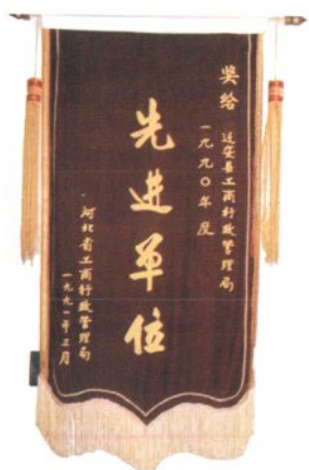 奖给
迁安县工商行政管理局
一九九〇年度
先进单位
河北省工商行政管理局
一九九一年三月